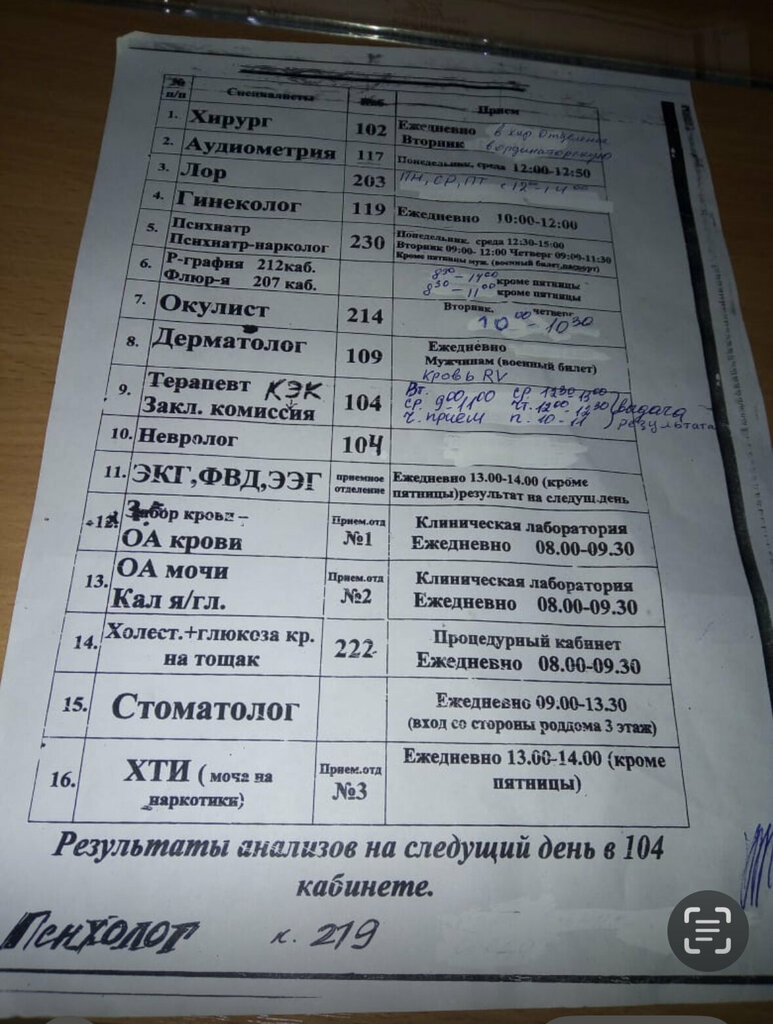 № п/п Специалисты Прием
1. Хирург 102 Ежедневно в хир отделение
Вторник в ординаторскую
2. Аудиометрия 117 Понедельник, среда 12:00-12:50
3. Лор 203 ПН, СР, ПТ
4. Гинеколог 119 Ежедневно 10:00-12:00
5. Психиатр
Психиатр-нарколог 230 Понедельник, среда 12:30-15:00
Вторник 09:00- 12:00 Четверг 09:00-11:30
Кроме пятницы муж. (военный билет, паспорт)
6. Р-графия 212каб. 8³⁰-14⁰⁰ кроме пятницы
Флюр-я 207 каб. 8³⁰-11⁰⁰ кроме пятницы
7. Окулист 214 Вторник, четверг
10⁰⁰-10³⁰
8. Дерматолог 109 Ежедневно
Мужчинам (военный билет)
кровь RV
9. Терапевт КЭК
Закл. комиссия 104 Вт. ср. 12³⁰-13⁰⁰
ср. 9⁰⁰-11⁰⁰ чт. 12⁰⁰-12³⁰ выдача
ч. прием п. 10-11 результата
10. Невролог 104
11. ЭКГ,ФВД,ЭЭГ приемное отделение Ежедневно 13.00-14.00 (кроме
пятницы)результат на следущ.день
12. Забор крови –
ОА крови Прием.отд №1 Клиническая лаборатория
Ежедневно 08.00-09.30
13. ОА мочи
Кал я/гл. Прием.отд №2 Клиническая лаборатория
Ежедневно 08.00-09.30
14. Холест.+глюкоза кр.
на тощак 222 Процедурный кабинет
Ежедневно 08.00-09.30
15. Стоматолог Ежедневно 09.00-13.30
(вход со стороны роддома 3 этаж)
16. ХТИ ( моча на
наркотики) Прием.отд №3 Ежедневно 13.00-14.00 (кроме
пятницы)
Результаты анализов на следущий день в 104
кабинете.
Психолог к. 219